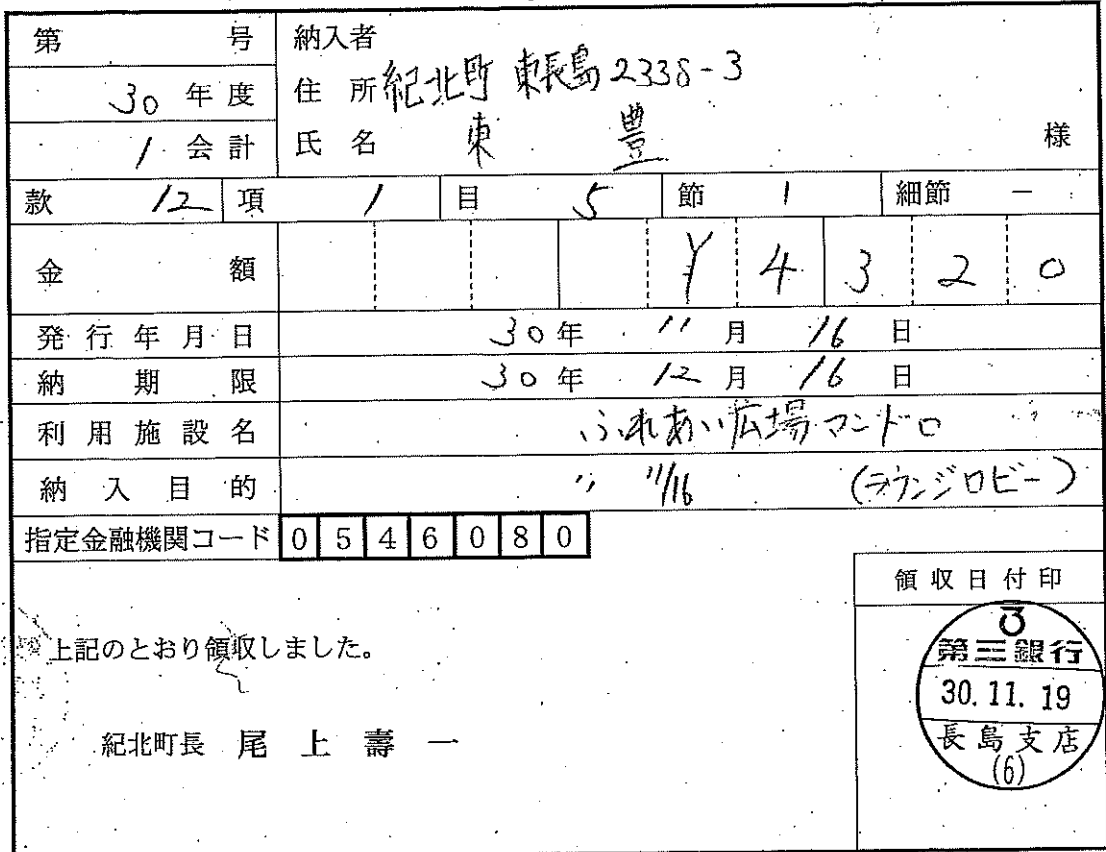 第 号
30 年度
1 会計
納入者
住所 紀北町 東長島 2338-3
氏名 東 豊 様
款 12 項 1 目 5 節 1 細節 −
金額 ¥4320
発行年月日 30年 11月 16日
納期限 30年 12月 16日
利用施設名 ふれあい広場マンドロ
納入目的 〃 11/16 (ラウンジロビー)
指定金融機関コード 0546080
領収日付印
上記のとおり領収しました。
第三銀行
30.11.19
長島支店
(6)
紀北町長 尾上壽一